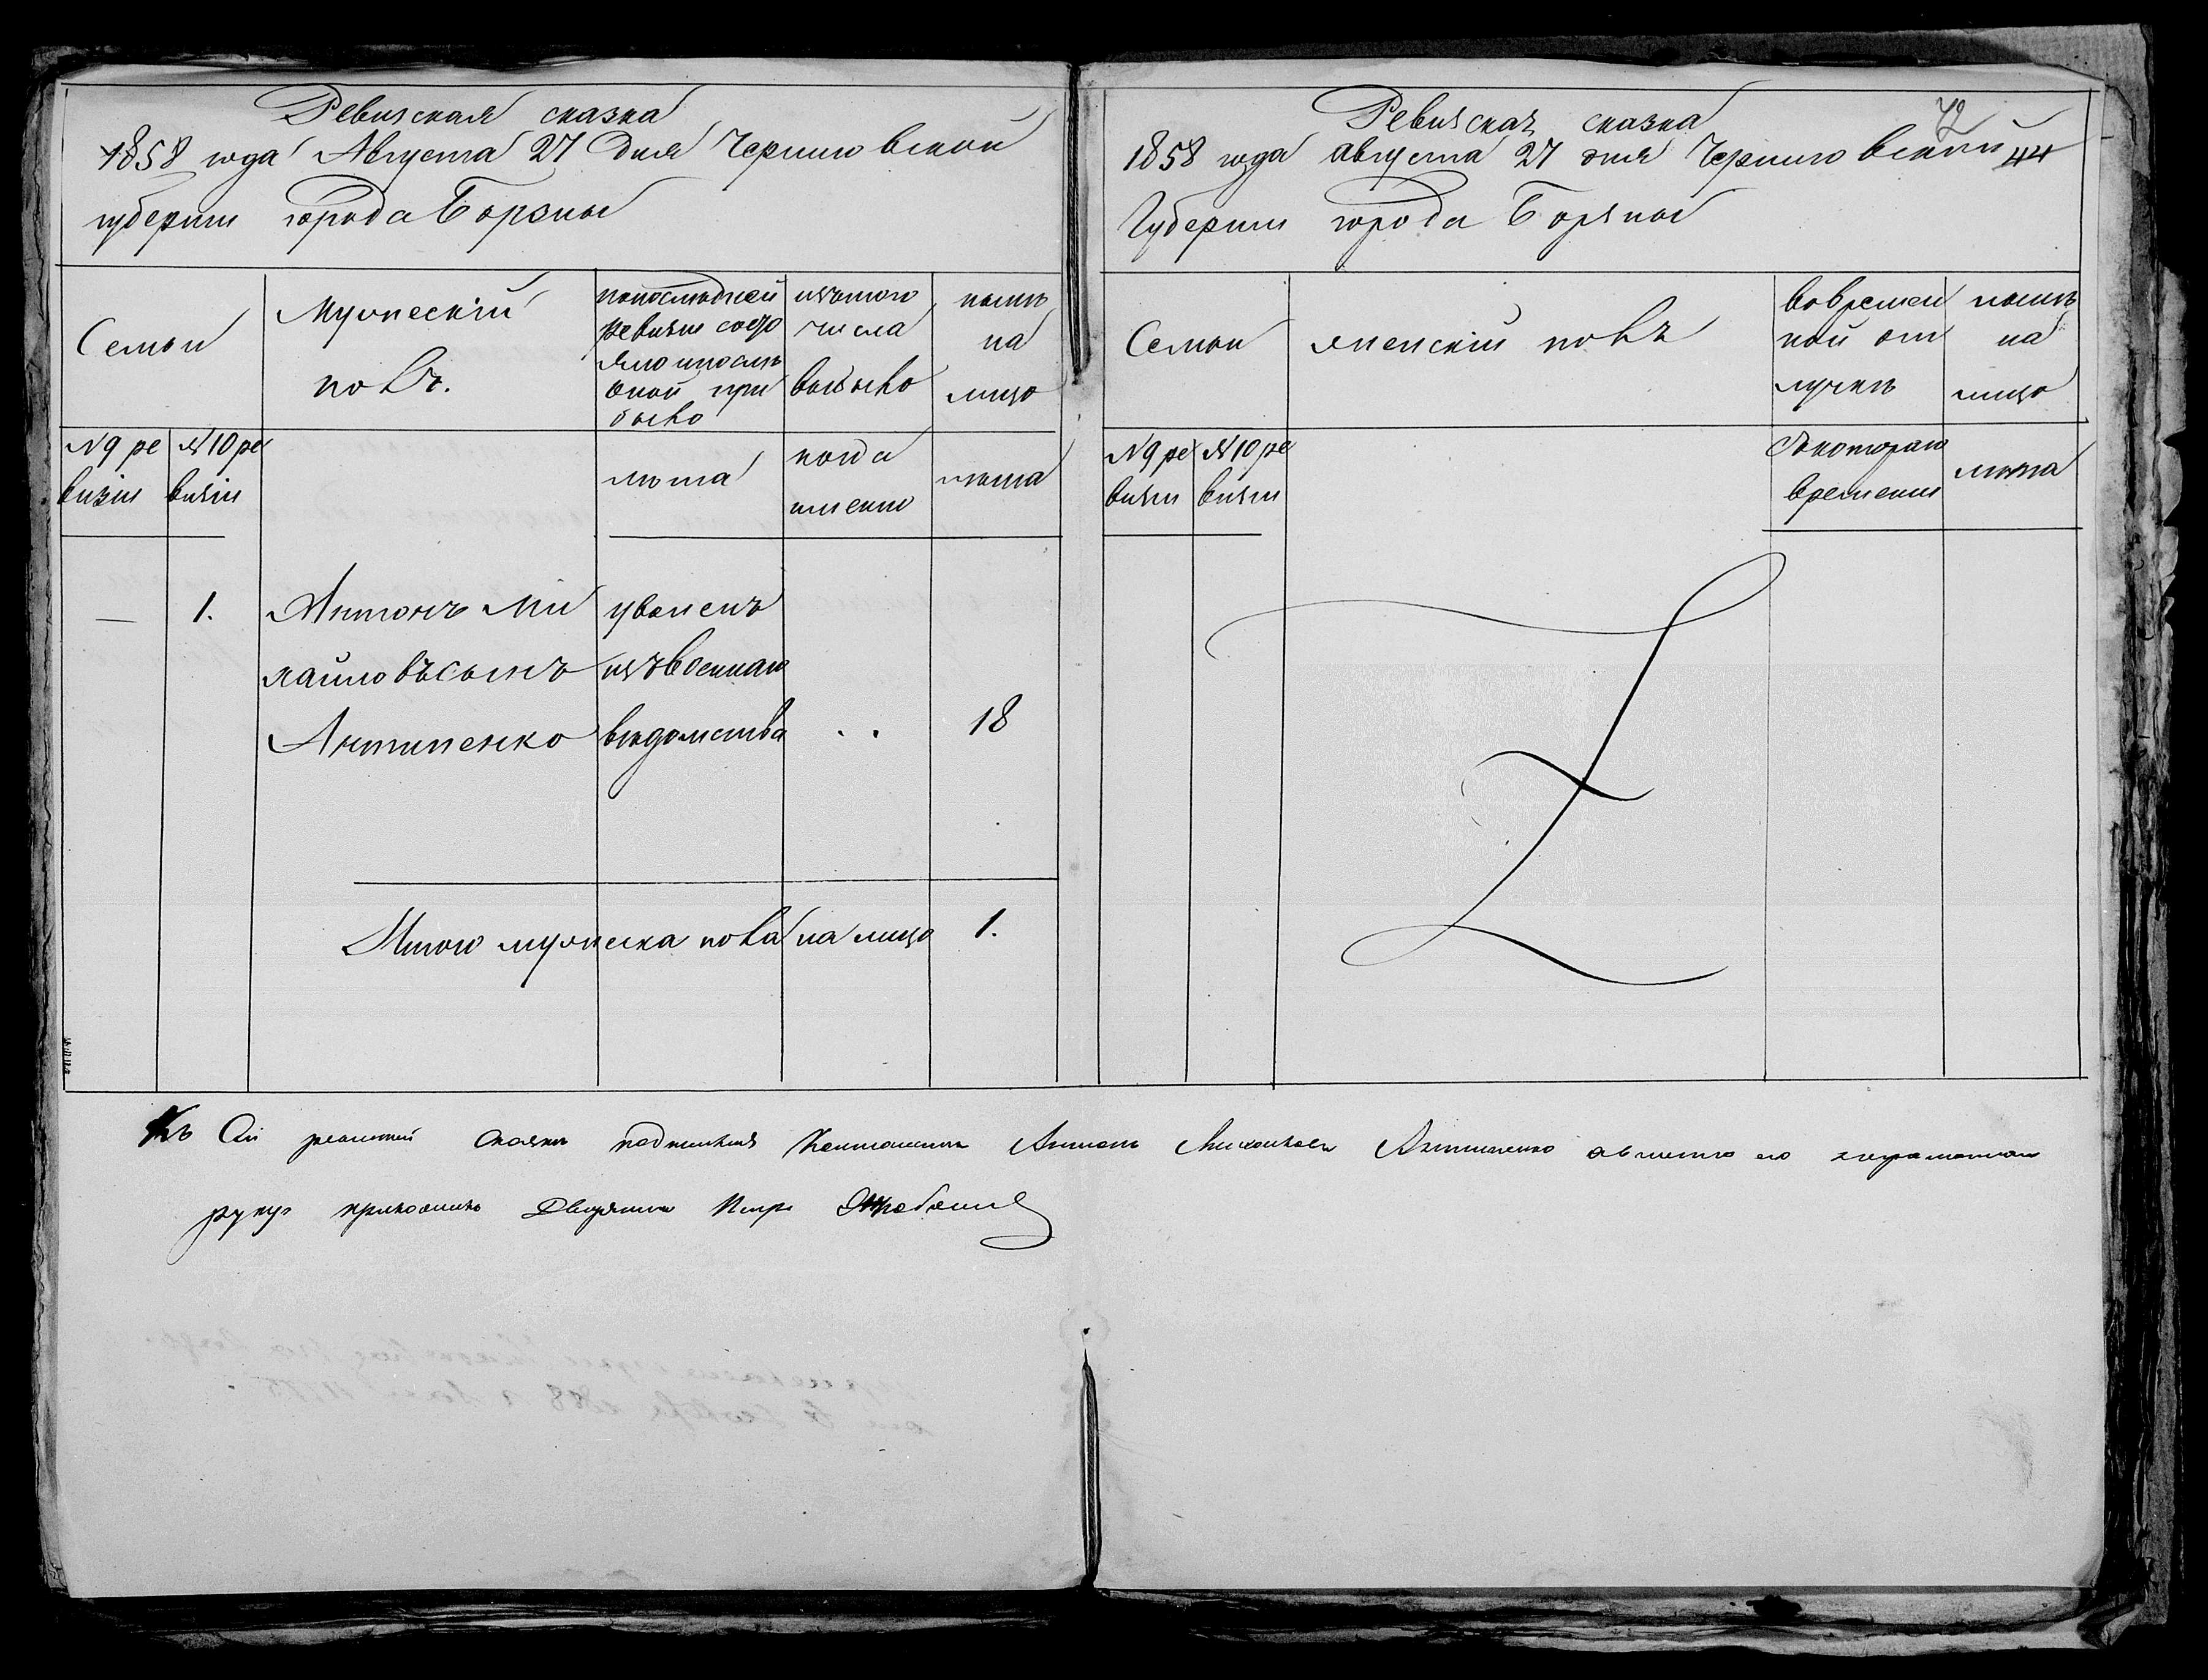 Ревизская сказка
1858 года Августа 27 дня Чернию вской
губернии города Борзны
Семьи
Мужескій
полъ.
попоследней
ревизіи состо
яло ипослѣ
оной при
было
изътого
числа
выбыло
нынѣ
на
лицо
№ 9 ре
визіи
№ 10 ре
визіи
лѣта
когда
именно
лѣта
—
1.
Антонъ Ми
хайловъ сынъ
Антипенко
уволенъ
изъ военнаго
вѣдомства
. .
18
Итого мужеска пола на лицо 1.
72
44
Ревизская сказка
1858 года августа 27 дня Черниговской
Губерніи города Борзны
Семьи
женскій полъ
вовремен
ной от
лучкѣ
нынѣ
на
лицо
№ 9 ре
визіи
№ 10 ре
визіи
съкотораго
времени
лѣта
Къ Сій сказки Антонъ Михайловъ Антипенко авместо его неграмотнаго
руку приложилъ Дворянинъ Петръ